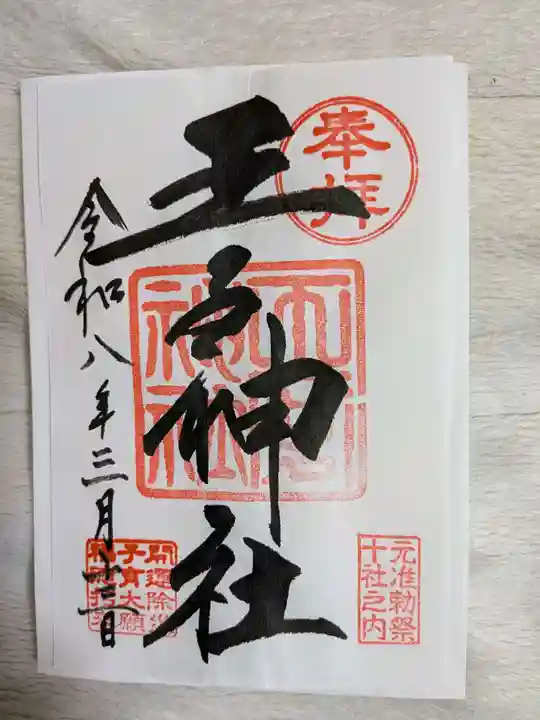 奉拝
王子神社
王子神社
令和八年三月廿日
元准勅祭
十社之内
開運除災
子育大願